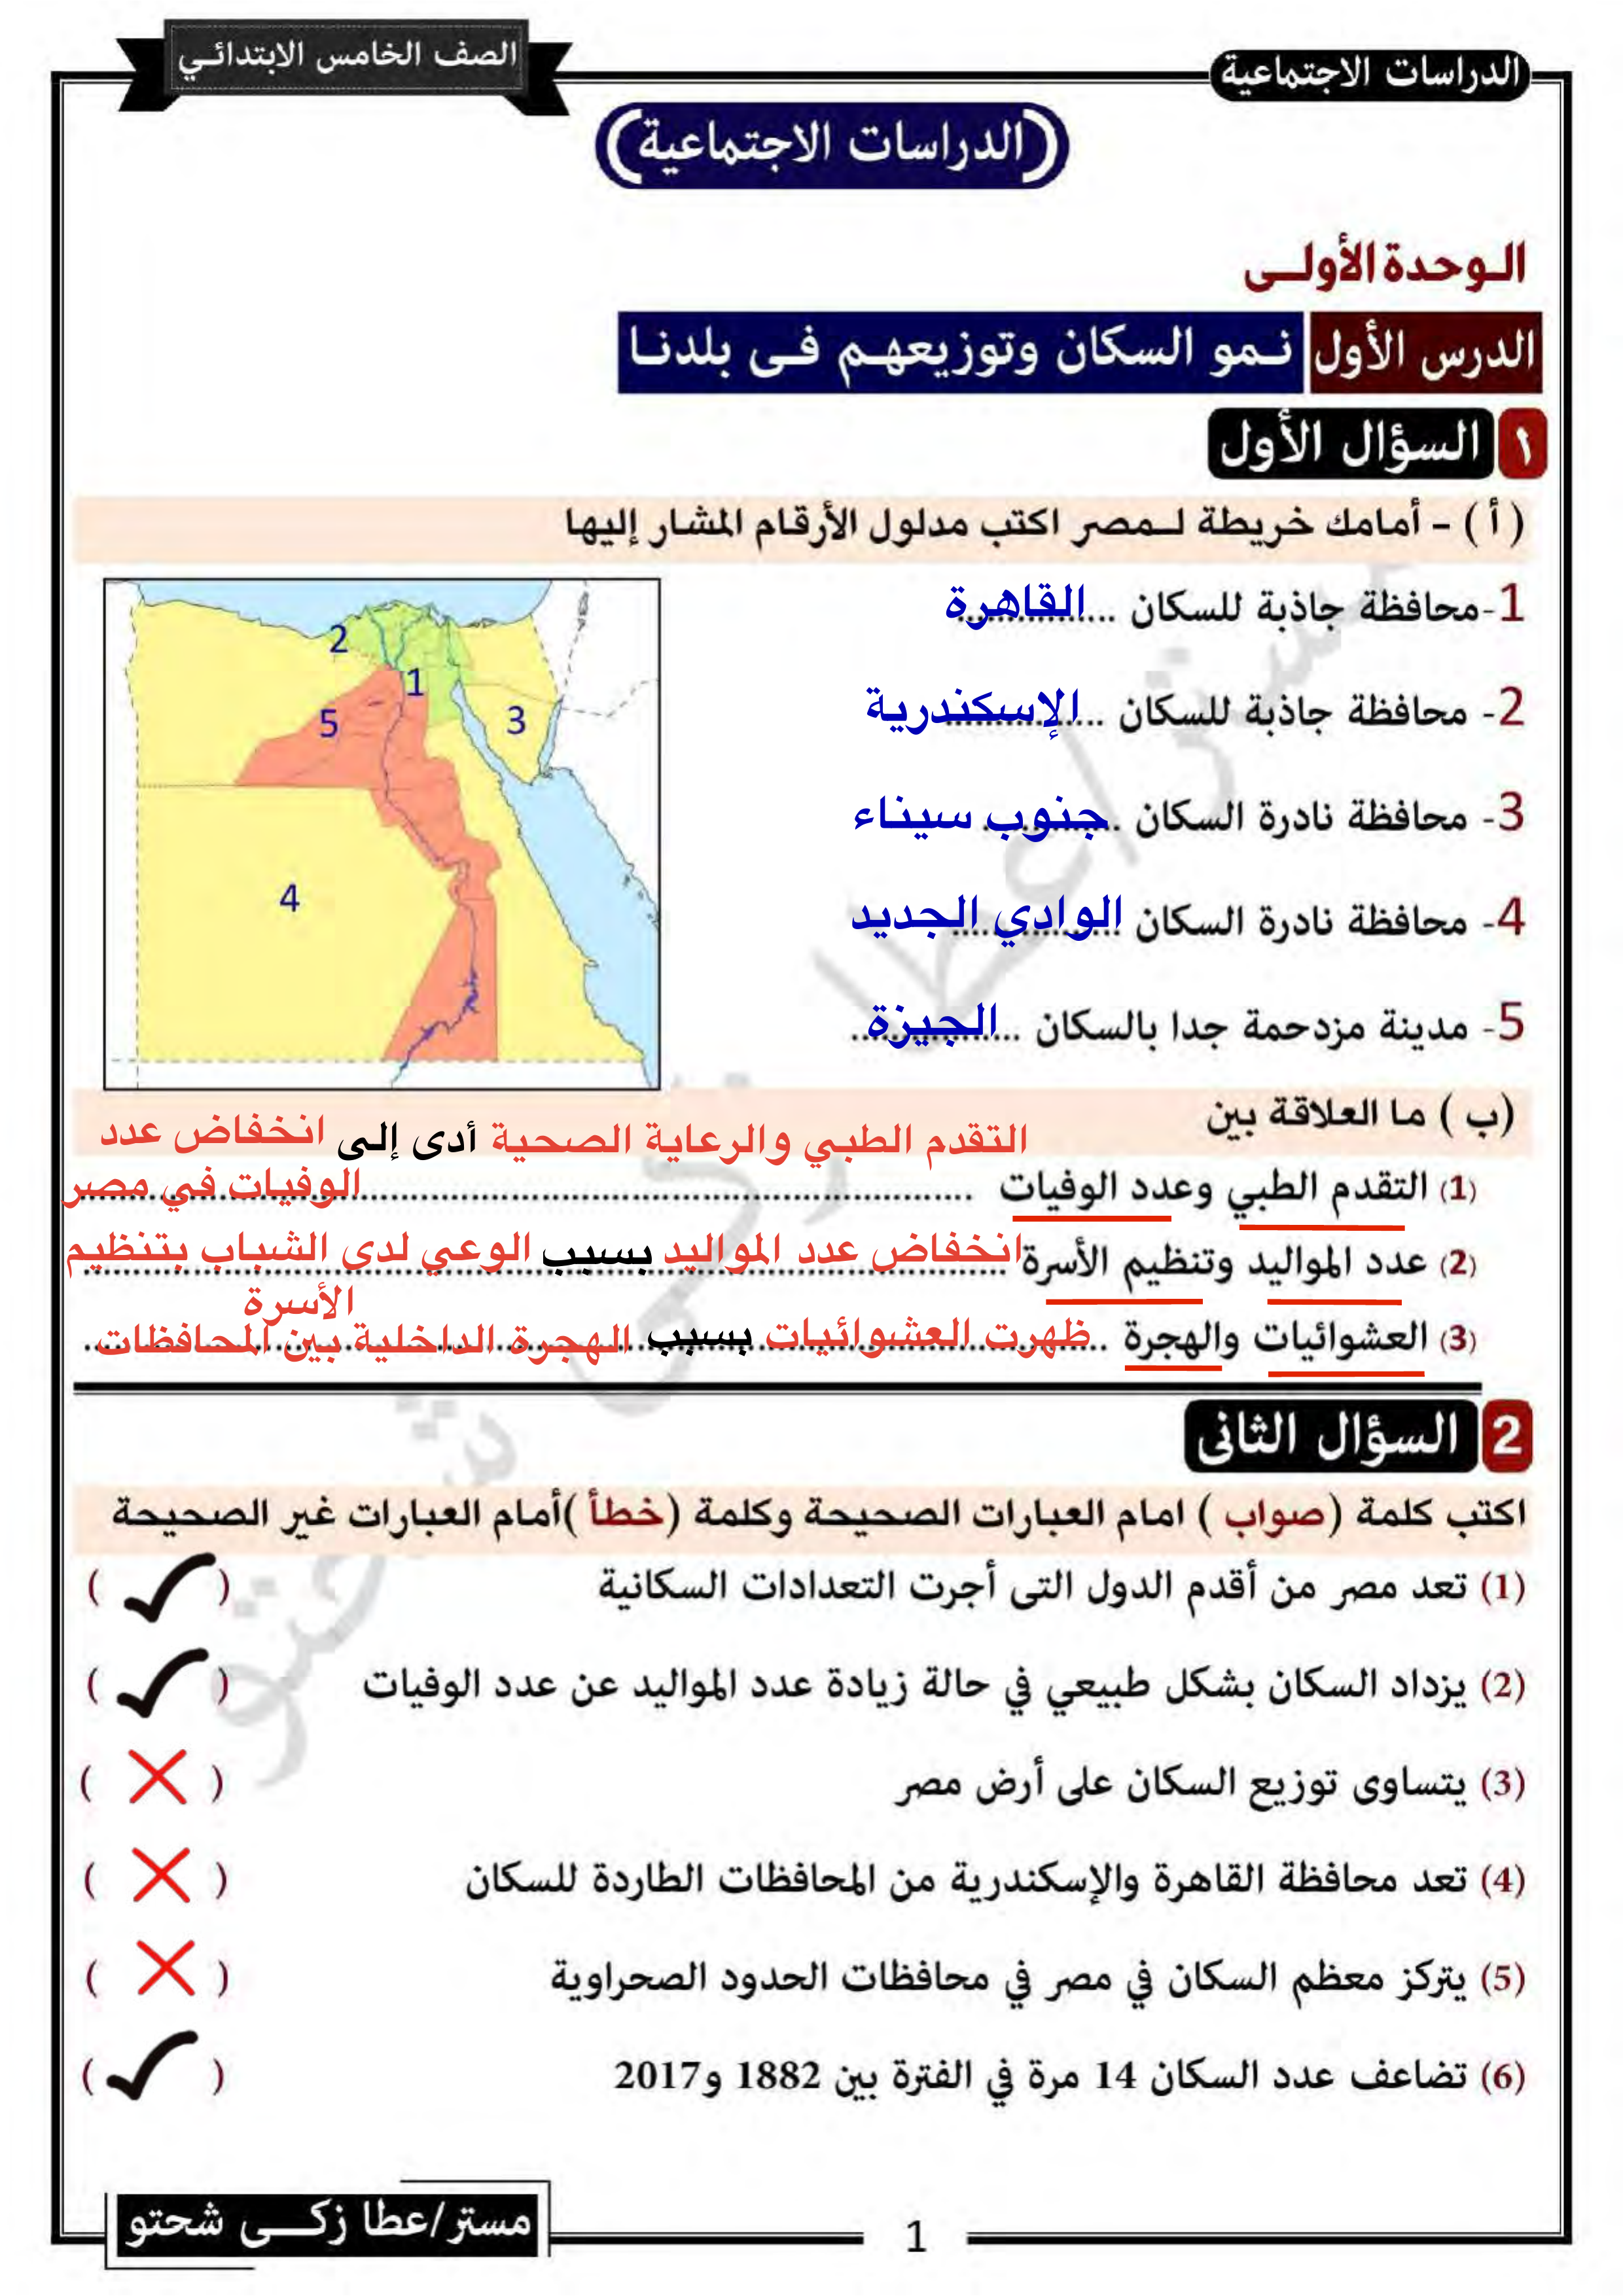 الدراسات الاجتماعية
الصف الخامس الابتدائي
(الدراسات الاجتماعية)
الوحدة الأولى
الدرس الأول نمو السكان وتوزيعهم فى بلدنا
١ السؤال الأول
( أ ) - أمامك خريطة لمصر اكتب مدلول الأرقام المشار إليها
1-محافظة جاذبة للسكان ................القاهرة
2- محافظة جاذبة للسكان ................الإسكندرية
3- محافظة نادرة السكان ................جنوب سيناء
4- محافظة نادرة السكان ................الوادي الجديد
5- مدينة مزدحمة جدا بالسكان ................الجيزة
2
1
5
3
4
(ب ) ما العلاقة بين
التقدم الطبي والرعاية الصحية أدى إلى انخفاض عدد
(1) التقدم الطبي وعدد الوفيات ................ الوفيات في مصر
(2) عدد المواليد وتنظيم الأسرة انخفاض عدد المواليد بسبب الوعي لدى الشباب بتنظيم
الأسرة
(3) العشوائيات والهجرة ..ظهرت العشوائيات بسبب الهجرة الداخلية بين المحافظات
2 السؤال الثانى
اكتب كلمة (صواب ) امام العبارات الصحيحة وكلمة (خطأ )أمام العبارات غير الصحيحة
(1) تعد مصر من أقدم الدول التى أجرت التعدادات السكانية ( ✓ )
(2) يزداد السكان بشكل طبيعي في حالة زيادة عدد المواليد عن عدد الوفيات ( ✓ )
(3) يتساوى توزيع السكان على أرض مصر ( ✗ )
(4) تعد محافظة القاهرة والإسكندرية من المحافظات الطاردة للسكان ( ✗ )
(5) يتركز معظم السكان في مصر في محافظات الحدود الصحراوية ( ✗ )
(6) تضاعف عدد السكان 14 مرة في الفترة بين 1882 و2017 ( ✓ )
مستر/عطا زكى شحتو
1
مستر/عطا زكى شحتو